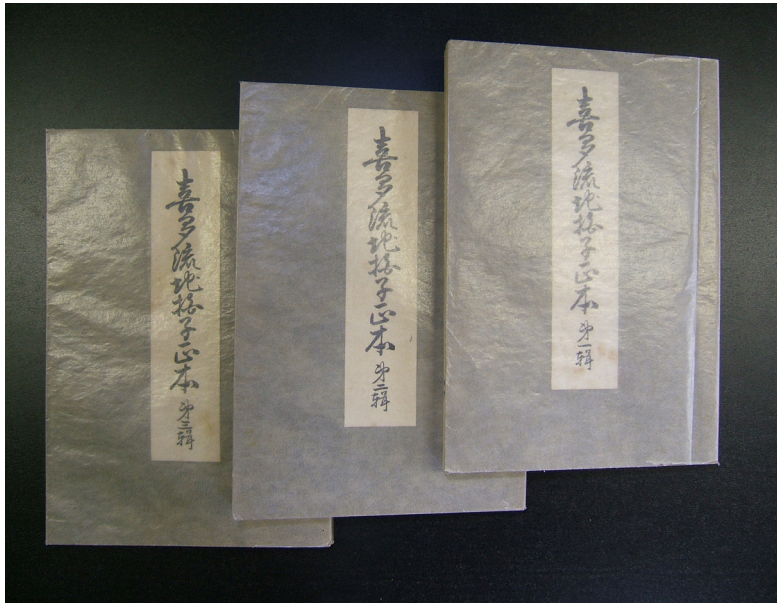 喜多流地拍子正本 第一輯
喜多流地拍子正本 第二輯
喜多流地拍子正本 第三輯